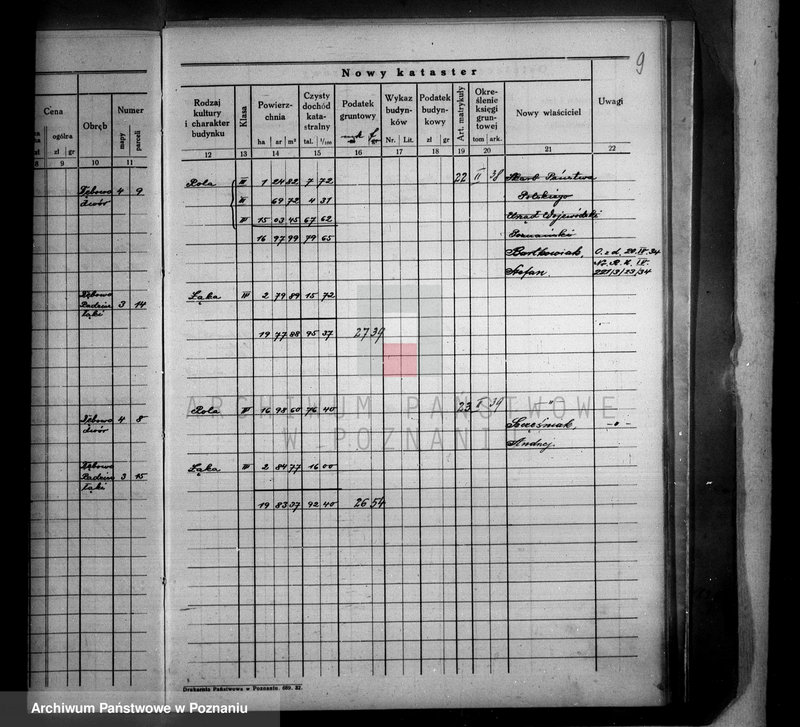 9
Nowy kataster
Cena
Obręb
Numer
mapy
parceli
ogólna
zł gr
8 9 10 11
Rodzaj kultury i charakter budynku
Klasa
Powierzchnia
ha ar m²
Czysty dochód katastralny
tal. 1/100
Podatek gruntowy
Wykaz budynków
Nr. Lit.
Podatek budynkowy
zł gr
Art. matrykuły
Określenie księgi gruntowej
tom ark.
Nowy właściciel
Uwagi
12 13 14 15 16 17 18 19 20 21 22
Rola III 1 24 82 7 72 22 II 38 Skarb Państwa
Dębowo 4 9 69 72 4 31 Polskiego
dwór 15 03 45 67 62 Urząd Wojewódzki
16 97 99 79 65 Poznański
Bartkowiak, O. z d. 20.IV.34
Stefan.
221/3/23/34
Łąka III 2 79 89 15 72
3 14
łąki
19 77 88 95 37 27 39
Rola 16 98 60 76 40 23 39 "
Dębowo 4 8 Szcześniak, -o-
dwór Andrzej.
Łąka III 2 84 77 16 00
3 15
łąki
19 83 37 92 40 26 54
ARCHIWUM PAŃSTWOWE
W POZNANIU
Drukarnia Państwowa w Poznaniu. 689. 32.
Archiwum Państwowe w Poznaniu